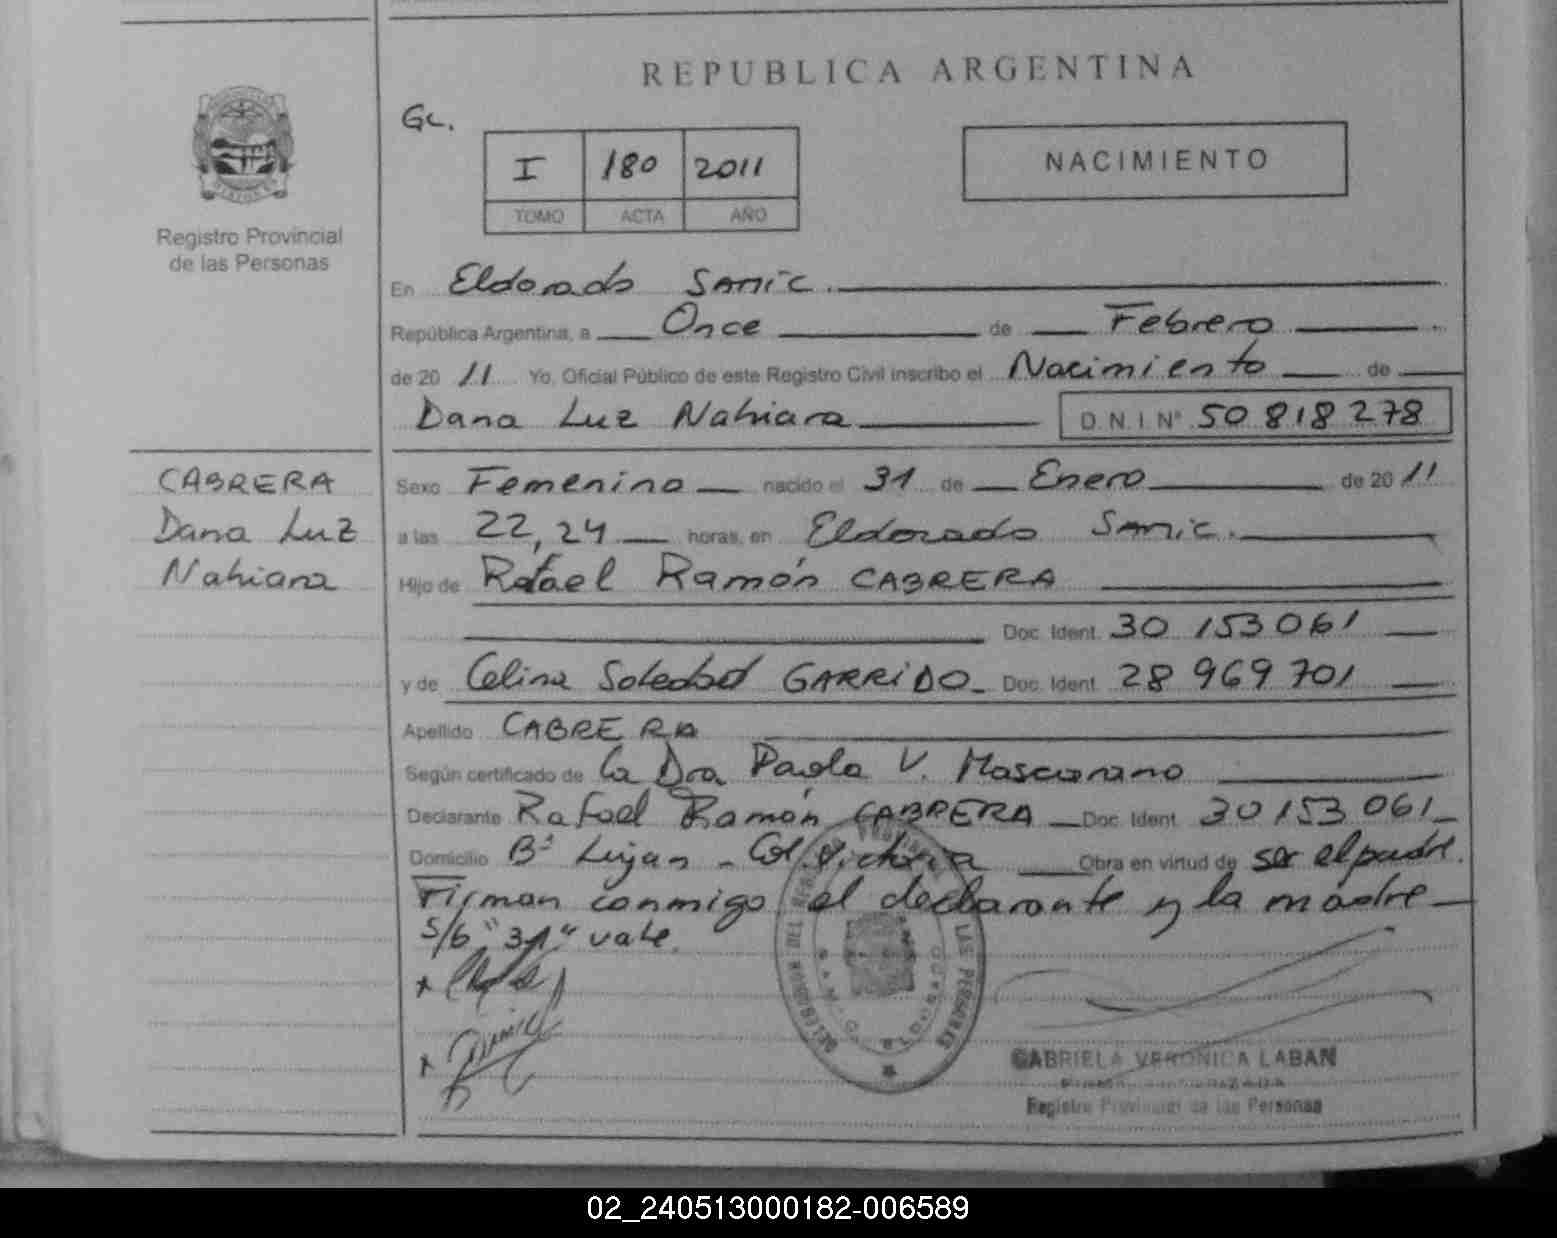 REPUBLICA ARGENTINA
Registro Provincial
de las Personas
GL.
I 180 2011
TOMO ACTA AÑO
NACIMIENTO
En Eldorado SAMIC.
República Argentina, a Once de Febrero
de 20 11 Yo, Oficial Público de este Registro Civil inscribo el Nacimiento de
Dana Luz Nahiara D.N.I. Nº 50 818 278
CABRERA
Dana Luz
Nahiara
Sexo Femenino nacido el 31 de Enero de 20 11
a las 22,24 horas, en Eldorado SAMIC.
Hijo de Rafael Ramón CABRERA
Doc. Ident. 30 153 061
y de Celina Soledad GARRIDO Doc. Ident. 28 969 701
Apellido CABRERA
Según certificado de la Dra Paola V.
Declarante Rafael Ramón CABRERA Doc. Ident. 30 153 061
Domicilio Bº Lujan - Col. Victoria Obra en virtud de ser el padre.
Firman conmigo el declarante y la madre
S/b "31" vale.
DEL REGISTRO LAS PERSONAS
ELDORADO
GABRIELA VERONICA LABAN
Registro Provincial de las Personas
02_240513000182-006589